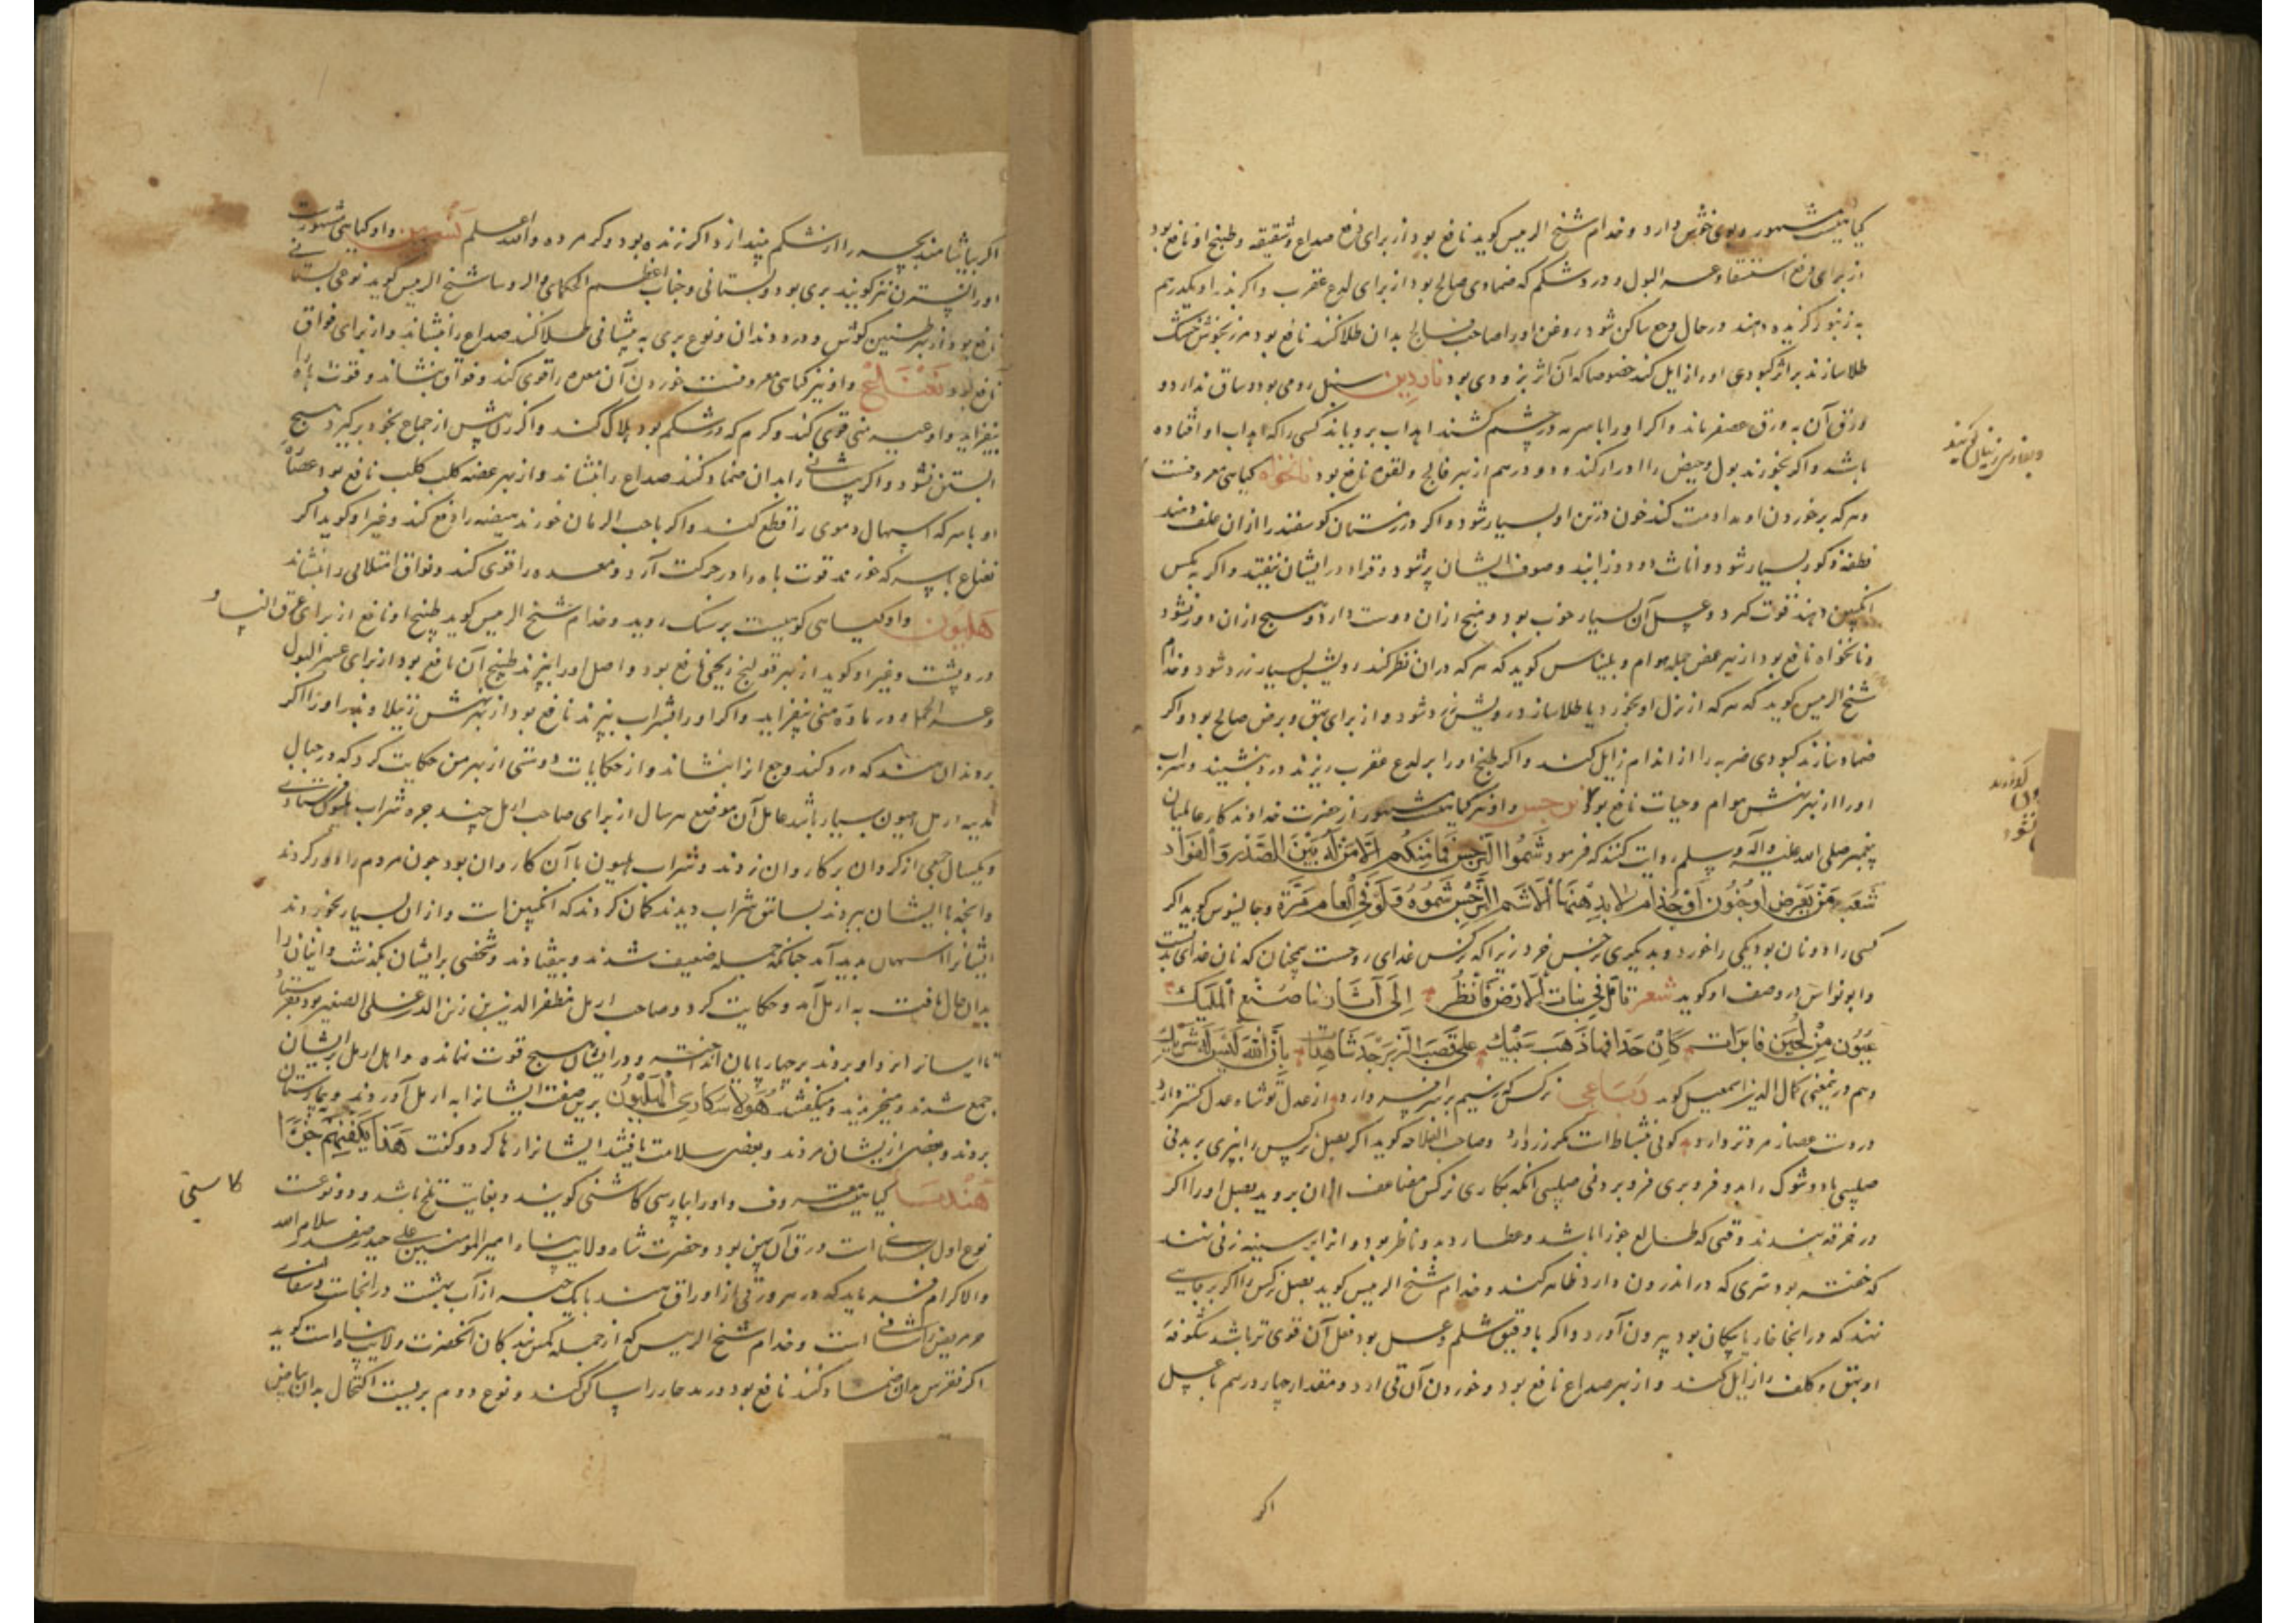 کیاهیست مشهور و بوی خوش دارد و خدام شیخ الرییس کوید نافع بود از برای دفع صداع و شقیقه و طبیخ او نافع بود
از برای دفع استسقا و عسر البول و درد شکم که ضمادی صالح بود از برای لدع عقرب و اکر بذر او یکدرهم
به زنبور کزیده دهند در حال وجع ساکن شود روغن او را صاحب فالج بدان طلا کند نافع بود مرزنجوش خشک
طلا سازند بر اثر کبودی او را زایل کند خصوصا که آن اثر بزودی بود ناردین سنبل رومی بود و ساق ندارد و
ورق آن به ورق عصفر ماند و اکر او را با سرمه در چشم کشند اهداب برویاند کسی را که اهداب او افتاده
باشد و اکر بخورند بول و حیض را ادرار کند و دو درهم از بهر فالج و لقوه نافع بود نانخواه کیاهی معروفست
و هر که بر خوردن او مداومت کند خون در تن او بسیار شود و اکر در زمستان کوسفند را از ان علف دهند
نطفه ذکور بسیار شود و اناث زود زایند و صوف ایشان پر شود و قراد در ایشان نیفتد و اکر به مکس
انکبین دهند قوت کیرد و عسل آن بسیار خوب بود و منج از ان دوست دارد و هیچ از ان دور نشود
و نانخواه نافع بود از بهر عض جمله هوام و بلیناس کوید که هر که در ان نظر کند رویش بسیار زرد شود و خدام
شیخ الرییس کوید که هر که از بزر او بخورد یا طلا سازد رویش زرد شود و از برای بهق و برص صالح بود و اکر
ضماد سازند کبودی ضربه را از اندام زایل کند و اکر طبیخ او را بر لدع عقرب ریزند درد بنشیند و شراب
او را از بهر نهش هوام و حیات نافع بود نرجس و او نیز کیاهیست مشهور از حضرت خداوند کار عالمیان
پیغمبر صلی الله علیه و آله و سلم روایت کنند که فرمود شموا النرجس فما منکم الا من له بین الصدر و الفؤاد
شعبة من برص او جنون او جذام لا یذهبها الا شم النرجس شموه و لو فی العام مرة و جالینوس کوید اکر
کسی را دو نان بود یکی را خورد و بدیکری نرجس خرد زیرا که نرکس غذای روحست همچنان که نان غذای تنست
و ابو نواس در وصف او کوید شعر تامل فی نبات الارض فانظر الی آثار ما صنع الملیک
عیون من لجین فاترات کان حداقها ذهب سبیک علی قصب الزبرجد شاهدات بان الله لیس له شریک
و هم درین معنی کمال الدین اسمعیل کوید رباعی نرکس که ز سیم بر سر افسر دارد از عدل تو شاه عدل کستر دارد
در دست عصا زمرد تر دارد کوئی نشاط است مکر زر دارد و صاحب الفلاحه کوید اکر بصل نرکس را ببری بریدنی
صلیبی با دو شوک را بدو فرو بری فرو بردنی صلیبی انکه بکاری نرکس مضاعف از ان بروید بصل او را اکر
در خرقه بندند وقتی که طالع جوزا باشد و عطارد بدو ناظر بود و انرا بر سینه زنی نهند
که خفته بود سری که در اندرون دارد ظاهر کند و خدام شیخ الرییس کوید بصل نرکس را اکر بر جایی
نهند که در انجا خار یا پیکان بود بیرون آورد و اکر با دقیق شیلم و عسل بود فعل آن قوی تر باشد شکوفه
او بهق و کلف را زایل کند و از بهر صداع نافع بود و خوردن آن قی ارد و مقدار چهار درهم با عسل
اکر
اکر بیاشامند بچه را از شکم بیندازد اکر زنده بود و کر مرده و الله اعلم نسرین و او کیاهی مشهورست
او را نسترن نیز کویند بری بود و بستانی و جناب اعظم الحکمای و الروسا شیخ الرییس کوید نوعی بستانی
نافع بود از بهر طنین کوش و درد دندان و نوع بری به پیشانی طلا کنند صداع را بنشاند و از برای فواق
نافع بود نعناع و او نیز کیاهی معروفست خوردن آن معده را قوی کند و فواق بنشاند و قوت باه را
بیفزاید و اوعیه منی قوی کند و کرم که در شکم بود هلاک کند و اکر زن پیش از جماع بخود برکیرد هیچ
ابستن نشود و اکر پیشانی را بدان ضماد کنند صداع را بنشاند و از بهر عضه کلب کلب نافع بود عصاره
او با سرکه اسهال دموی را قطع کند و اکر با حب الرمان خورند هیضه را دفع کند و غیر او کوید اکر
نعناع با سرکه خورند قوت باه را در حرکت آرد و معده را قوی کند و فواق امتلائی را بنشاند
هلیون و او کیاهی کوهیست بر سنک روید و خدام شیخ الرییس کوید طبیخ او نافع از برای عرق النسا و
درد پشت و غیر او کوید از بهر قولنج ریحی نافع بود و اصل او را بپزند طبیخ آن نافع بود از برای عسر البول
و عسر الحبل و در ماده منی بیفزاید و اکر او را بشراب بپزند نافع بود از بهر نهش رتیلا و بذر او را اکر
بر دندان نهند که درد کند وجع انرا بنشاند و از حکایات دوستی از بهر من حکایت کرد که در جبال
اربل هلیون بسیار باشد عامل آن موضع هر سال از برای صاحب اربل چند جره شراب هلیون فرستادی
و یکسال جمعی از کردان بر کاروان زدند و شراب هلیون با آن کاروان بود چون مردم را دور کردند
و انچه با ایشان ببردند بساتق شراب دیدند کمان کردند که انکبین است و از ان بسیار بخوردند
ایشانرا اسهال پدید آمد چنانکه جمله ضعیف شدند و بیفتادند و شخصی بر ایشان بکذشت و ایشان را
بدان حال یافت به اربل آمد و حکایت کرد و صاحب اربل مظفر الدین بن زین الدین علی الصغیر بود بفرستاد
تا ایشانرا بر داوبردند بر چهارپایان انداخته و در ایشان هیچ قوت نمانده و اهل اربل بر ایشان
جمع شدند و میخندیدند و میکفتند هؤلاء سکاری الهلیون برین صفت ایشانرا به اربل آوردند و بیمارستان
بردند و بعضی از ایشان مردند و بعضی سلامت یافتند ایشانرا رها کرد و کفت هذا یکفیهم جزاء
هندبا کیاهیست معروف و او را بپارسی کاشنی کویند و بغایت تلخ باشد و دو نوعست
نوع اول بستانی است ورق آن پهن بود و حضرت شاه ولایت پناه امیر المومنین علی حیدر صفدر سلام الله
و الاکرام فرماید که در هر ورقی از اوراق هندبا یک حبه از آب بهشت در انجاست
هر مریض را شافی است و خدام شیخ الرییس که از جمله کمین بندکان آنحضرت ولایت پناه است کوید
اکر نقرس بدان ضماد کنند نافع بود و رمد حار را ساکن کند و نوع دوم بریست اکتحال بدان بیاض
کاسنی